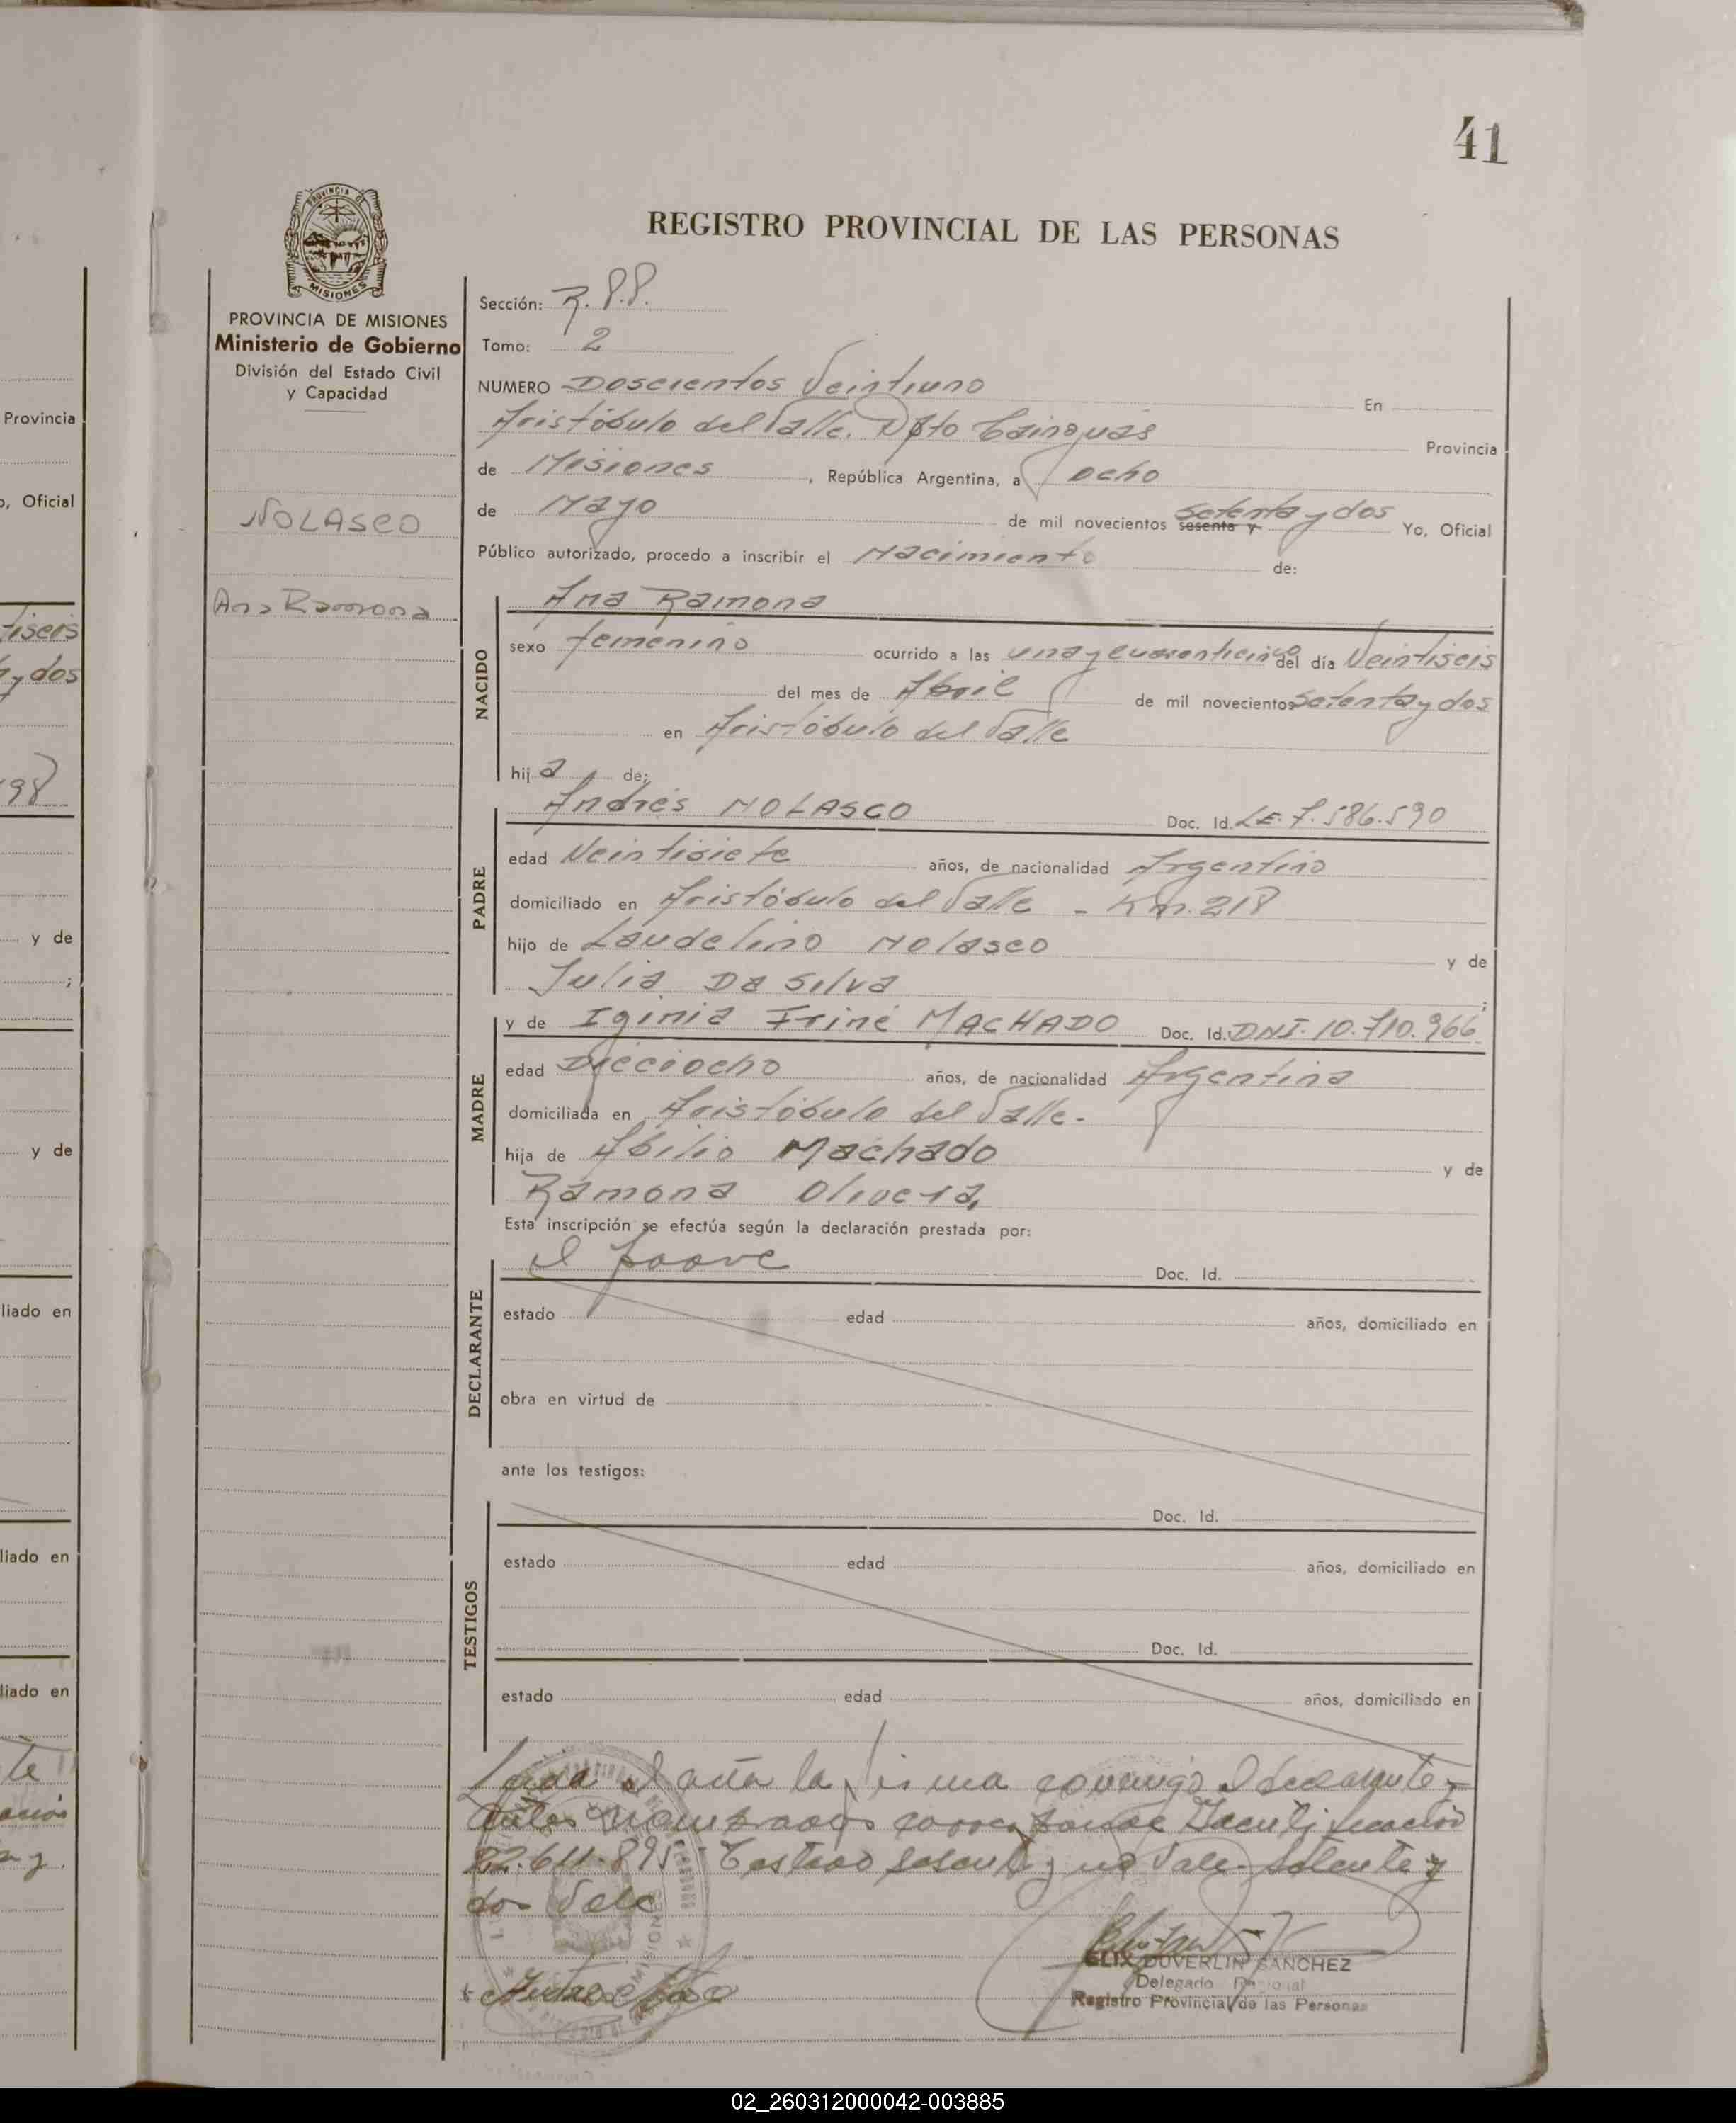 41
PROVINCIA DE
MISIONES
REGISTRO PROVINCIAL DE LAS PERSONAS
PROVINCIA DE MISIONES
Ministerio de Gobierno
División del Estado Civil
y Capacidad
NOLASCO
Ana Ramona
Sección: R.P.P.
Tomo: 2
NUMERO Doscientos Veintiuno En
Aristóbulo del Valle. Dpto Cainguás Provincia
de Misiones, República Argentina, a ocho
de Mayo de mil novecientos sesenta y setenta y dos Yo, Oficial
Público autorizado, procedo a inscribir el Nacimiento de:
NACIDO
Ana Ramona
sexo femenino ocurrido a las una y cuarenticinco del día Veintiseis
del mes de Abril de mil novecientos setenta y dos
en Aristóbulo del Valle
hija de:
PADRE
Andrés NOLASCO Doc. Id. LE. 7.586.590
edad Veintisiete años, de nacionalidad Argentino
domiciliado en Aristóbulo del Valle - Km. 218
hijo de Laudelino Nolasco y de
Julia Da Silva;
MADRE
y de Iginia Iriné MACHADO Doc. Id. DNI. 10.710.966
edad Dieciocho años, de nacionalidad Argentina
domiciliada en Aristóbulo del Valle.
hija de Abilio Machado y de
Ramona Olivera,
Esta inscripción se efectúa según la declaración prestada por:
DECLARANTE
el padre Doc. Id.
estado edad años, domiciliado en
obra en virtud de
ante los testigos:
TESTIGOS
Doc. Id.
estado edad años, domiciliado en
Doc. Id.
estado edad años, domiciliado en
Leida el acta la firma conmigo el declarante
antes nombrado corresponde Identificacion
22.611.895 - Testado sesenta y no Vale - setenta y
dos Vale
ELIX DUVERLIN SANCHEZ
Delegado Regional
Registro Provincial de las Personas
Provincia
o, Oficial
tiseis
y dos
98
y de
;
y de
liado en
liado en
liado en
te
02_260312000042-003885